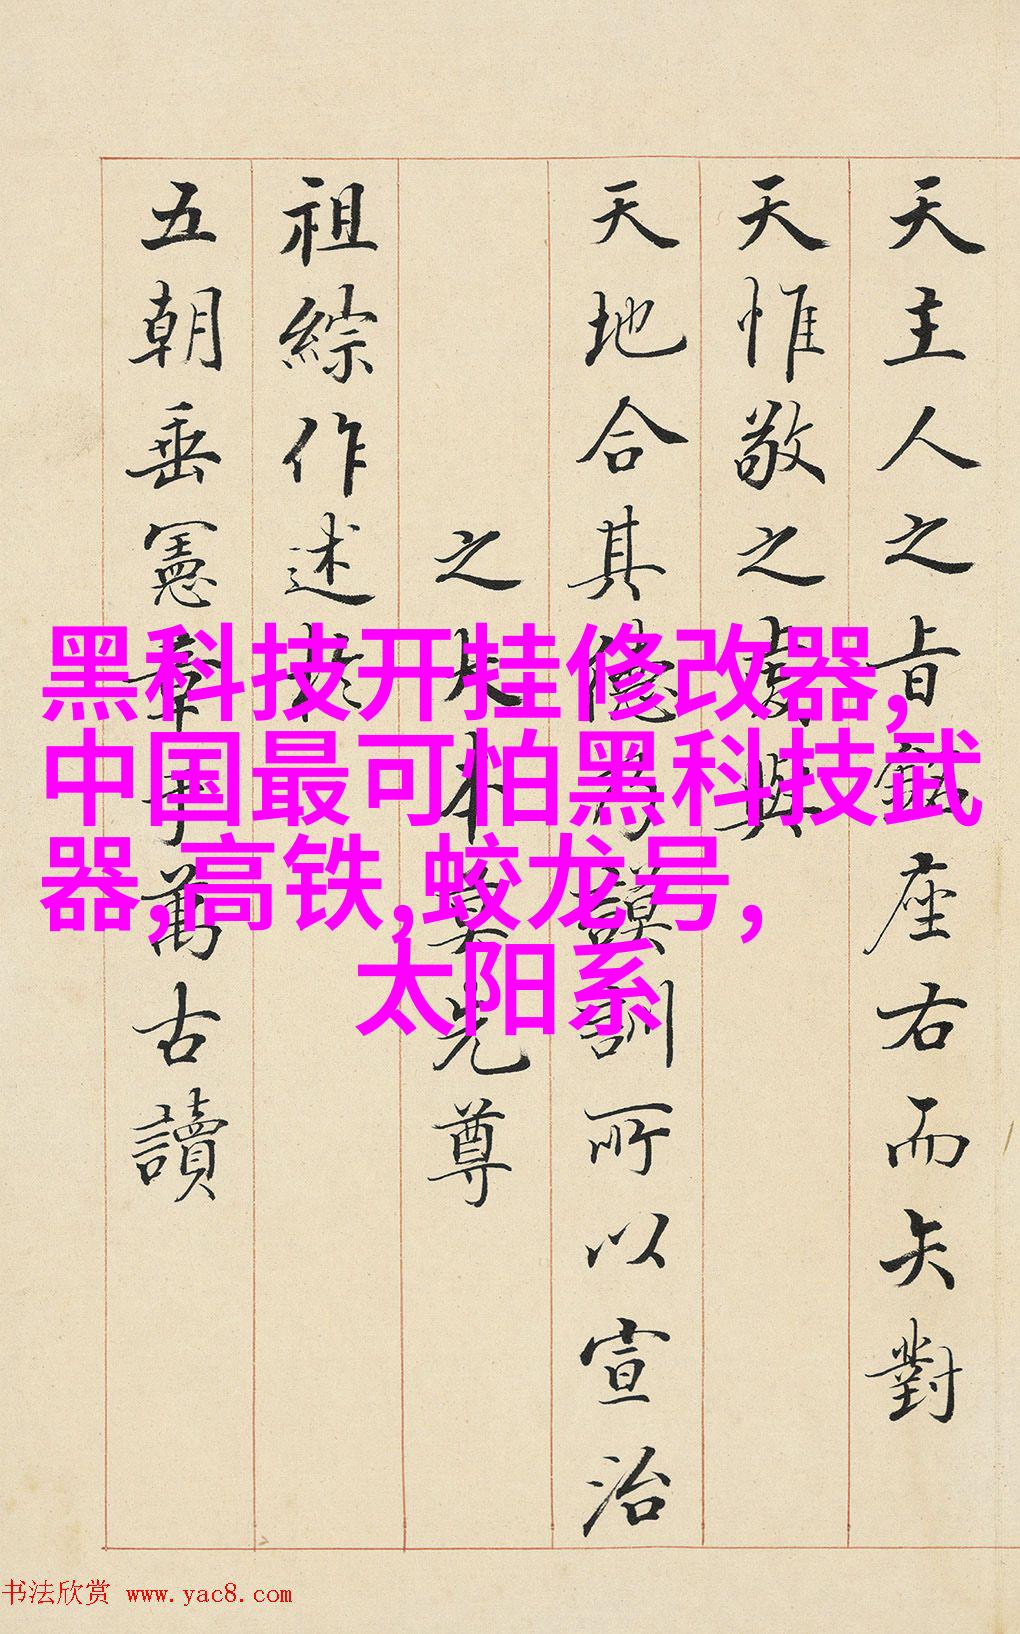 天主人之旨銘座右而矢對
天惟敬之
天地合其德為謨訓所以宣治
之大本莫先尊
祖綜作述於
五朝垂憲章于萬古讀
黑科技开挂修改器,
中国最可怕黑科技武
器,高铁,蛟龙号,
太阳系
书法欣赏 www.yac8.com